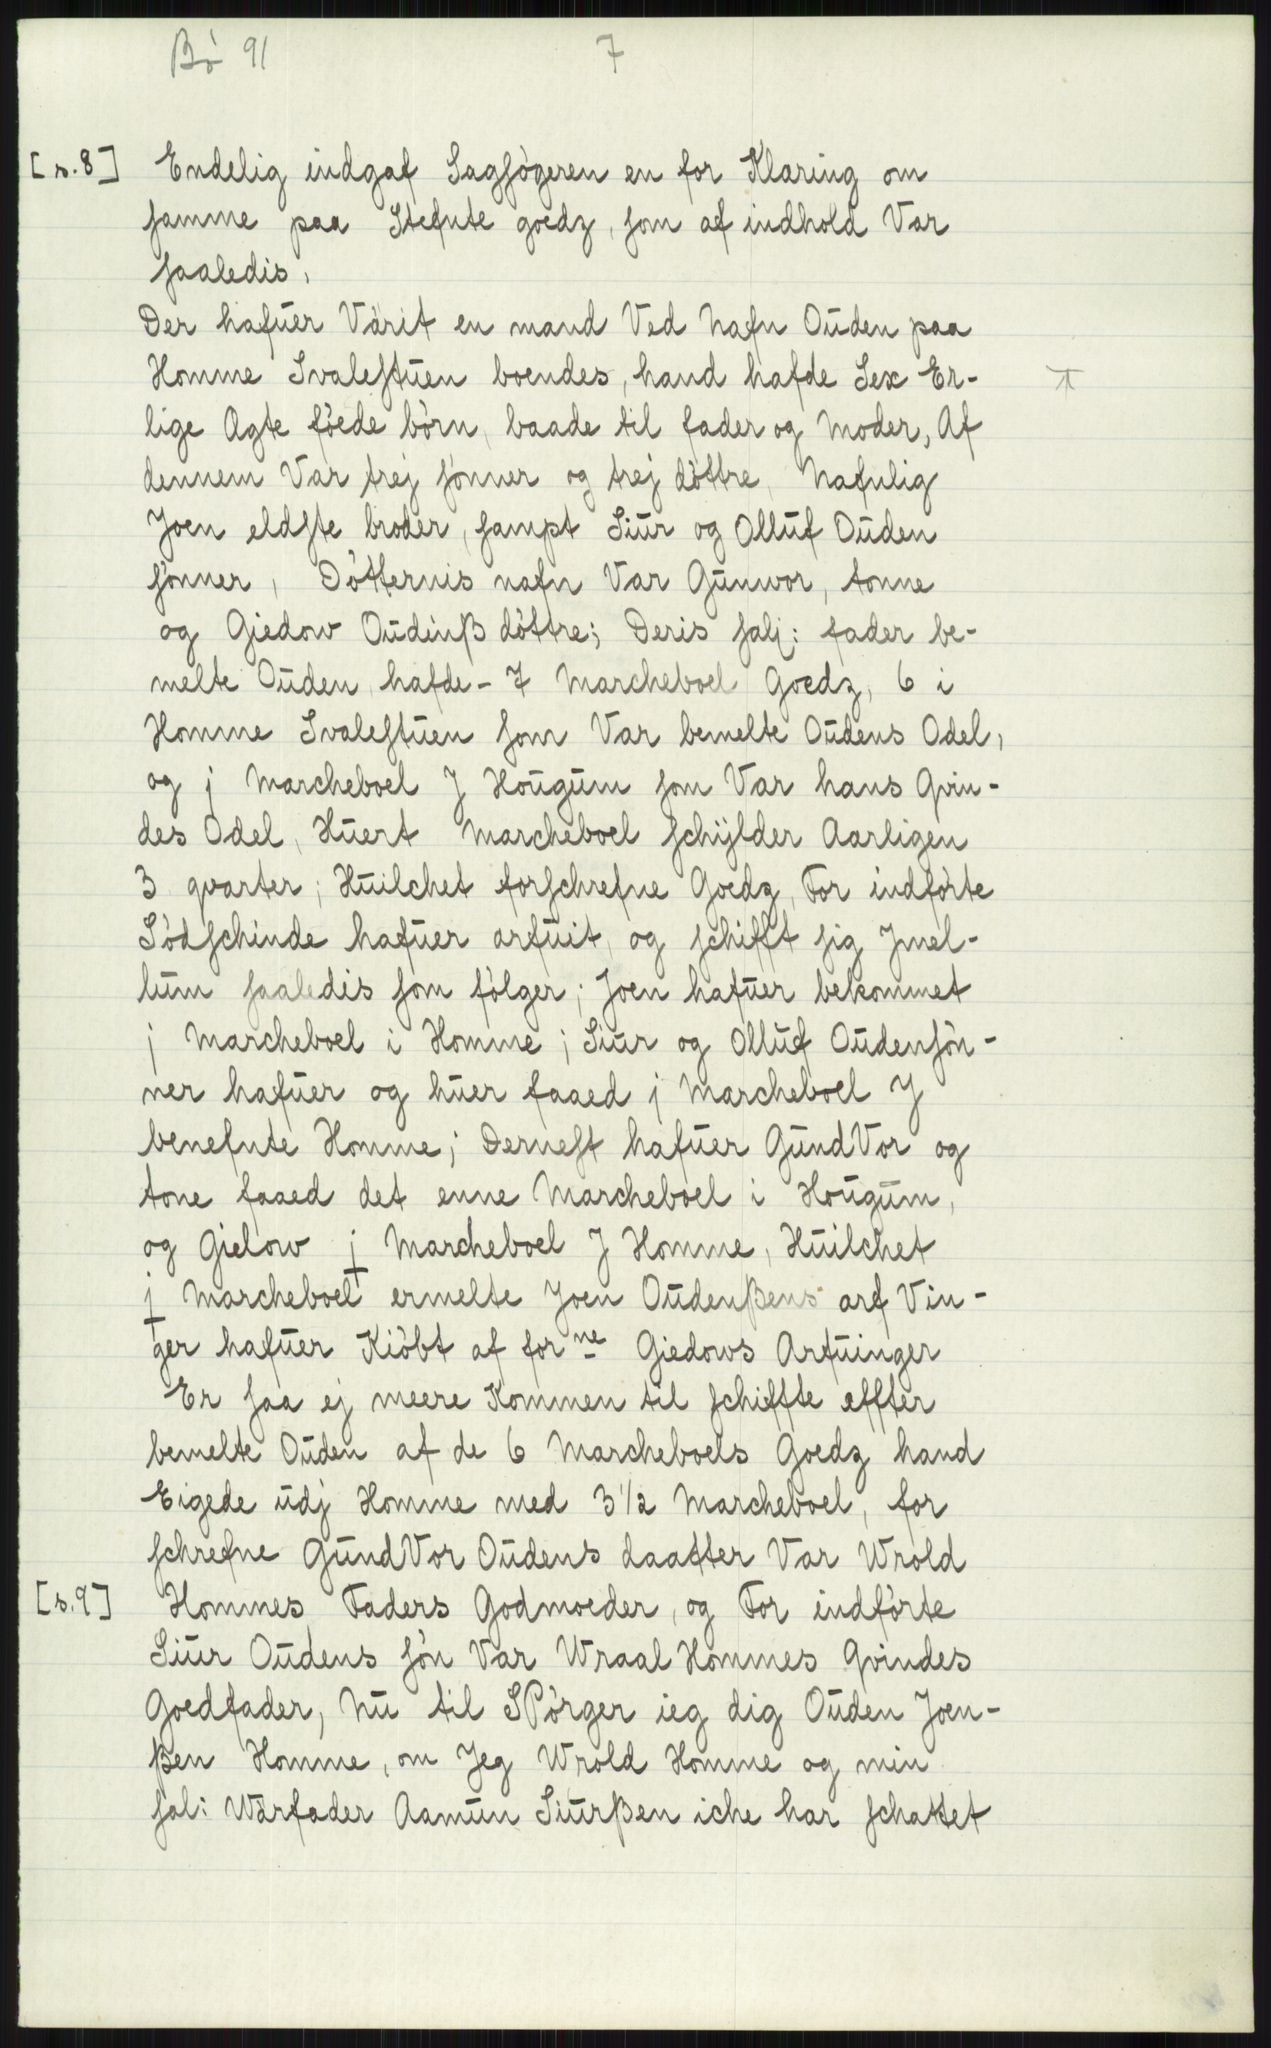 Bö 91 7
[s. 8] Endelig indgaf Sagsøgeren en for Klaring om
samme paa Stefnte goedz, som af indhold Var
saaledis,
Der hafuer Värit en mand Ved Nafn Ouden paa
Homme Svalestuen boendes, hand hafde Sex Er-
lige Agte föede börn, baade til fader og Moder, Af
dennem Var trej sönner og trej döttre, Nafnlig
Joen eldste broder, sampt Siur og Olluf Ouden
sönner, Dötternis nafn Var Gunvor, tonne
og Giedow Oudinß döttre; Deris salj: fader be-
melte Ouden, hafde - 7 Marcheboel Goedz, 6 i
Homme Svalestuen som Var bemelte Oudens Odel,
og j Marcheboel J Hougum som Var hans Qvin-
des Odel, Huert Marcheboel schÿlder Aarligen
3 qvarter; Huilchet forschrefne Goedz, For indförte
Södschinde hafuer arfuit, og schifft sig Jmel-
lum saaledis som fölger; Joen hafuer bekommet
j Marcheboel i Homme; Siur og Olluf Oudensön-
ner hafuer og huer faaed j Marcheboel J
benefnte Homme; Dernest hafuer GundVor og
tone faaed det enne Marcheboel i Hougum,
og Gielow j Marcheboel J Homme, Huilchet
j Marcheboel ermelte Joen Oudenßens arf Vin-
ger hafuer Kiöbt af for ne Giedows Arfuinger
Er saa ej meere Kommen til schiffte effter
bemelte Ouden af de 6 Marcheboels Goedz hand
Eigede udj Homme med 3 1/2 Marcheboel, for
schrefne GundVor Oudens daatter Var Wrold
[s. 9] Hommes Faders Godmoeder, og For indförte
Siur Oudens sön Var Wraal Hommes Qvindes
Goedfader, Nu til SPörger ieg dig Ouden Joen-
ßen Homme, om Jeg Wrold Homme og min
sal: Wärfader Aamun Siurßen iche har schattet